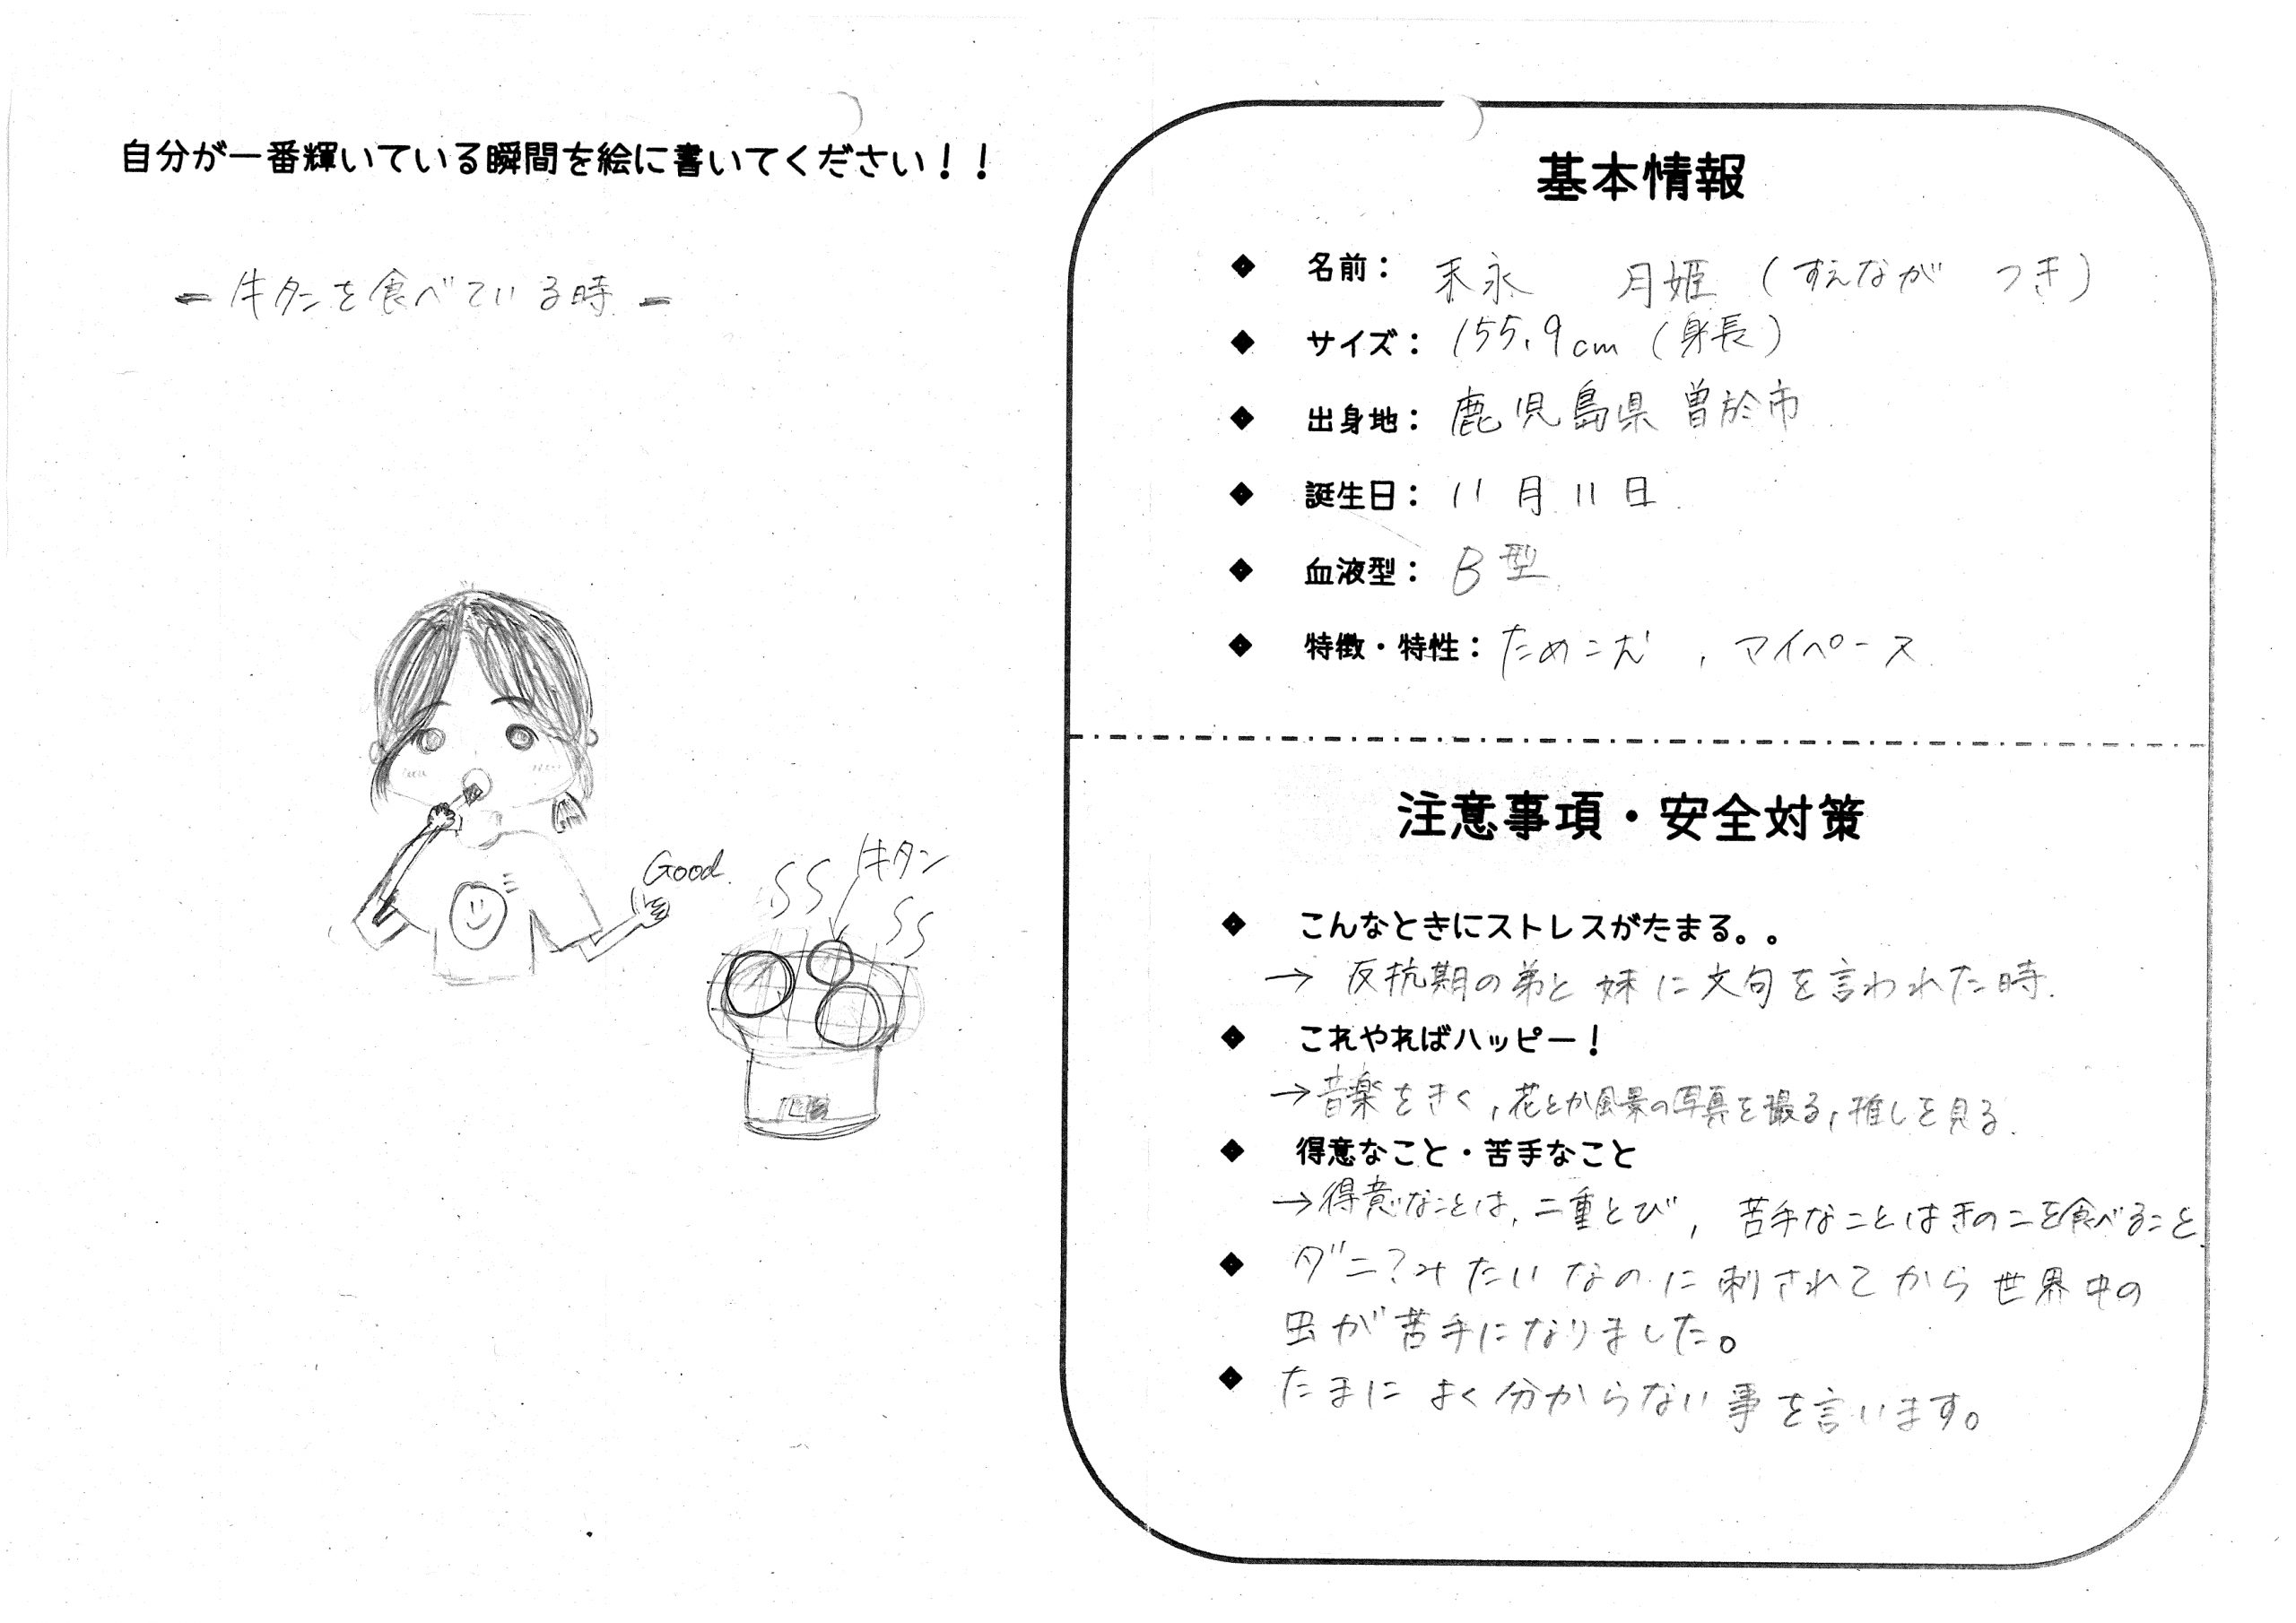 自分が一番輝いている瞬間を絵に書いてください！！
ー 牛タンを食べている時 ー
Good.
牛タン
基本情報
◆ 名前： 末永 月姫 (すえなが つき)
◆ サイズ： 155.9cm (身長)
◆ 出身地： 鹿児島県曽於市
◆ 誕生日： 11月11日
◆ 血液型： B型
◆ 特徴・特性： ためこむ , マイペース
注意事項・安全対策
◆ こんなときにストレスがたまる。。
→ 反抗期の弟と妹に文句を言われた時.
◆ これやればハッピー！
→ 音楽をきく, 花とか風景の写真を撮る, 推しを見る.
◆ 得意なこと・苦手なこと
→ 得意なことは, 二重とび, 苦手なことはきのこを食べること.
◆ ダニ?みたいなのに刺されてから世界中の
虫が苦手になりました。
◆ たまによく分からない事を言います。